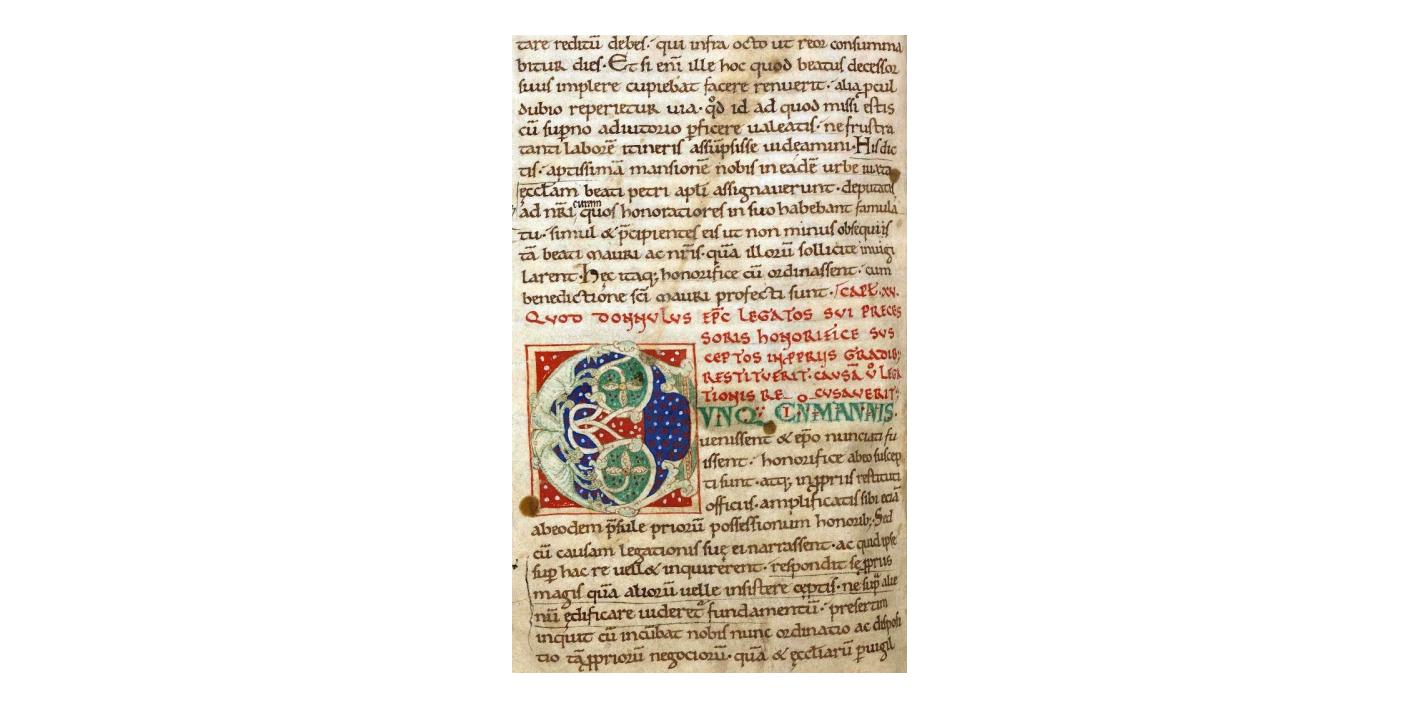 tare reditū debes. qui infra octo ut reor consumma
bitur dies. Et si eni ille hoc quod beatus decessor
suus implere cupiebat facere renuerit. alia ꝓcul
dubio reperietur uia. qd id ad quod missi estis
cū supno adiutorio ꝑficere ualeatis. ne frustra
tanti laborē itineris assūpsisse uideamini. His dic
tis. aptissimā mansionē nobis in eadē urbe iuxta
ęccłam beati petri apłi assignauerunt. deputatis
ad nr̄i curam quos honoratiores in suo habebant famula
tu. simul & p̄cipientes eis ut non minus obsequiis
tā beati mauri ac nr̄is. quā illorū sollicite inuigi
larent. Hęc itaq; honorifice cū ordinassent. cum
benedictione sc̄i mauri profecti sunt. CAPŁ. XV.
QUOD DOMNULUS EP̄C LEGATOS SUI PRECES
SORIS HONORIFICE SUS
CEPTOS IN PPRIIS GRADIB;
RESTITUERIT. CAUSĀ Ů LEGA
TIONIS RE CUSAVERIT;
CUNQ; CINMANNIS.
uenissent & ep̄o nunciati fu
issent. honorifice ab eo suscep
ti sunt. atq; in ꝓpriis restituti
officiis. amplificatis sibi etiā
ab eodem p̄sule priorū possessionum honorib; Sed
cū causam legationis suę ei narrassent. ac quid ipse
sup hac re uell& inquirerent. respondit se ꝓpriis
magis quā aliorū uelle insistere ceptis. ne sup alie
nū ędificare uideret̄ fundamentū. presertim
inquit cū incūbat nobis nunc ordinatio ac disposi
tio tā ꝓpriorū negociorū. quā & ęccłiarū ꝑuigil